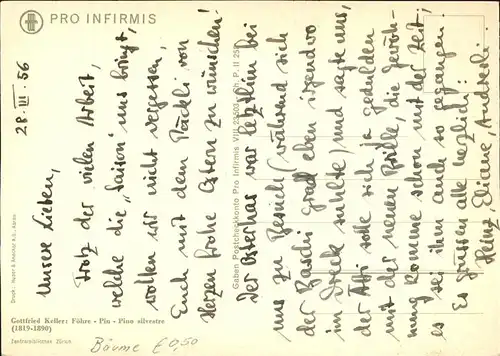 PRO INFIRMIS
28. III. 56
Unsere Lieben,
Trotz der vielen Arbeit,
welche die "Saison" uns bringt,
wollen wir nicht vergessen,
Euch mit dem Päckli von
Herzen frohe Ostern zu wünschen!
Der Osterhas war letzthin bei
uns zu Besuch, während sich
der Baschi grad eben irgendwo
im Dreck suhlte, und sagte uns,
der Atti solle sich ja gedulden
mit der neuen Brille, die Gewöh-
nung komme schon mit der Zeit,
es sei ihm auch so gegangen.
Es grüssen alle herzlich:
Heinz Eliane Andreesli.
Gaben Postcheckkonto Pro Infirmis VIII 23503
P. II 259
Gottfried Keller: Föhre - Pin - Pino silvestre
(1819-1890)
Zentralbibliothek Zürich
Bäume € 0,50